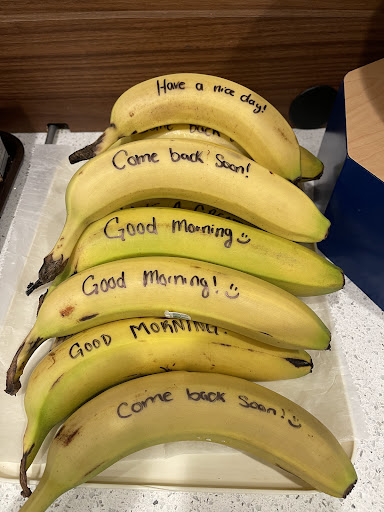 Have a nice day!
back
Come back Soon!
Good Morning
Good Morning!
GOOD MORNING.
Come back Soon!